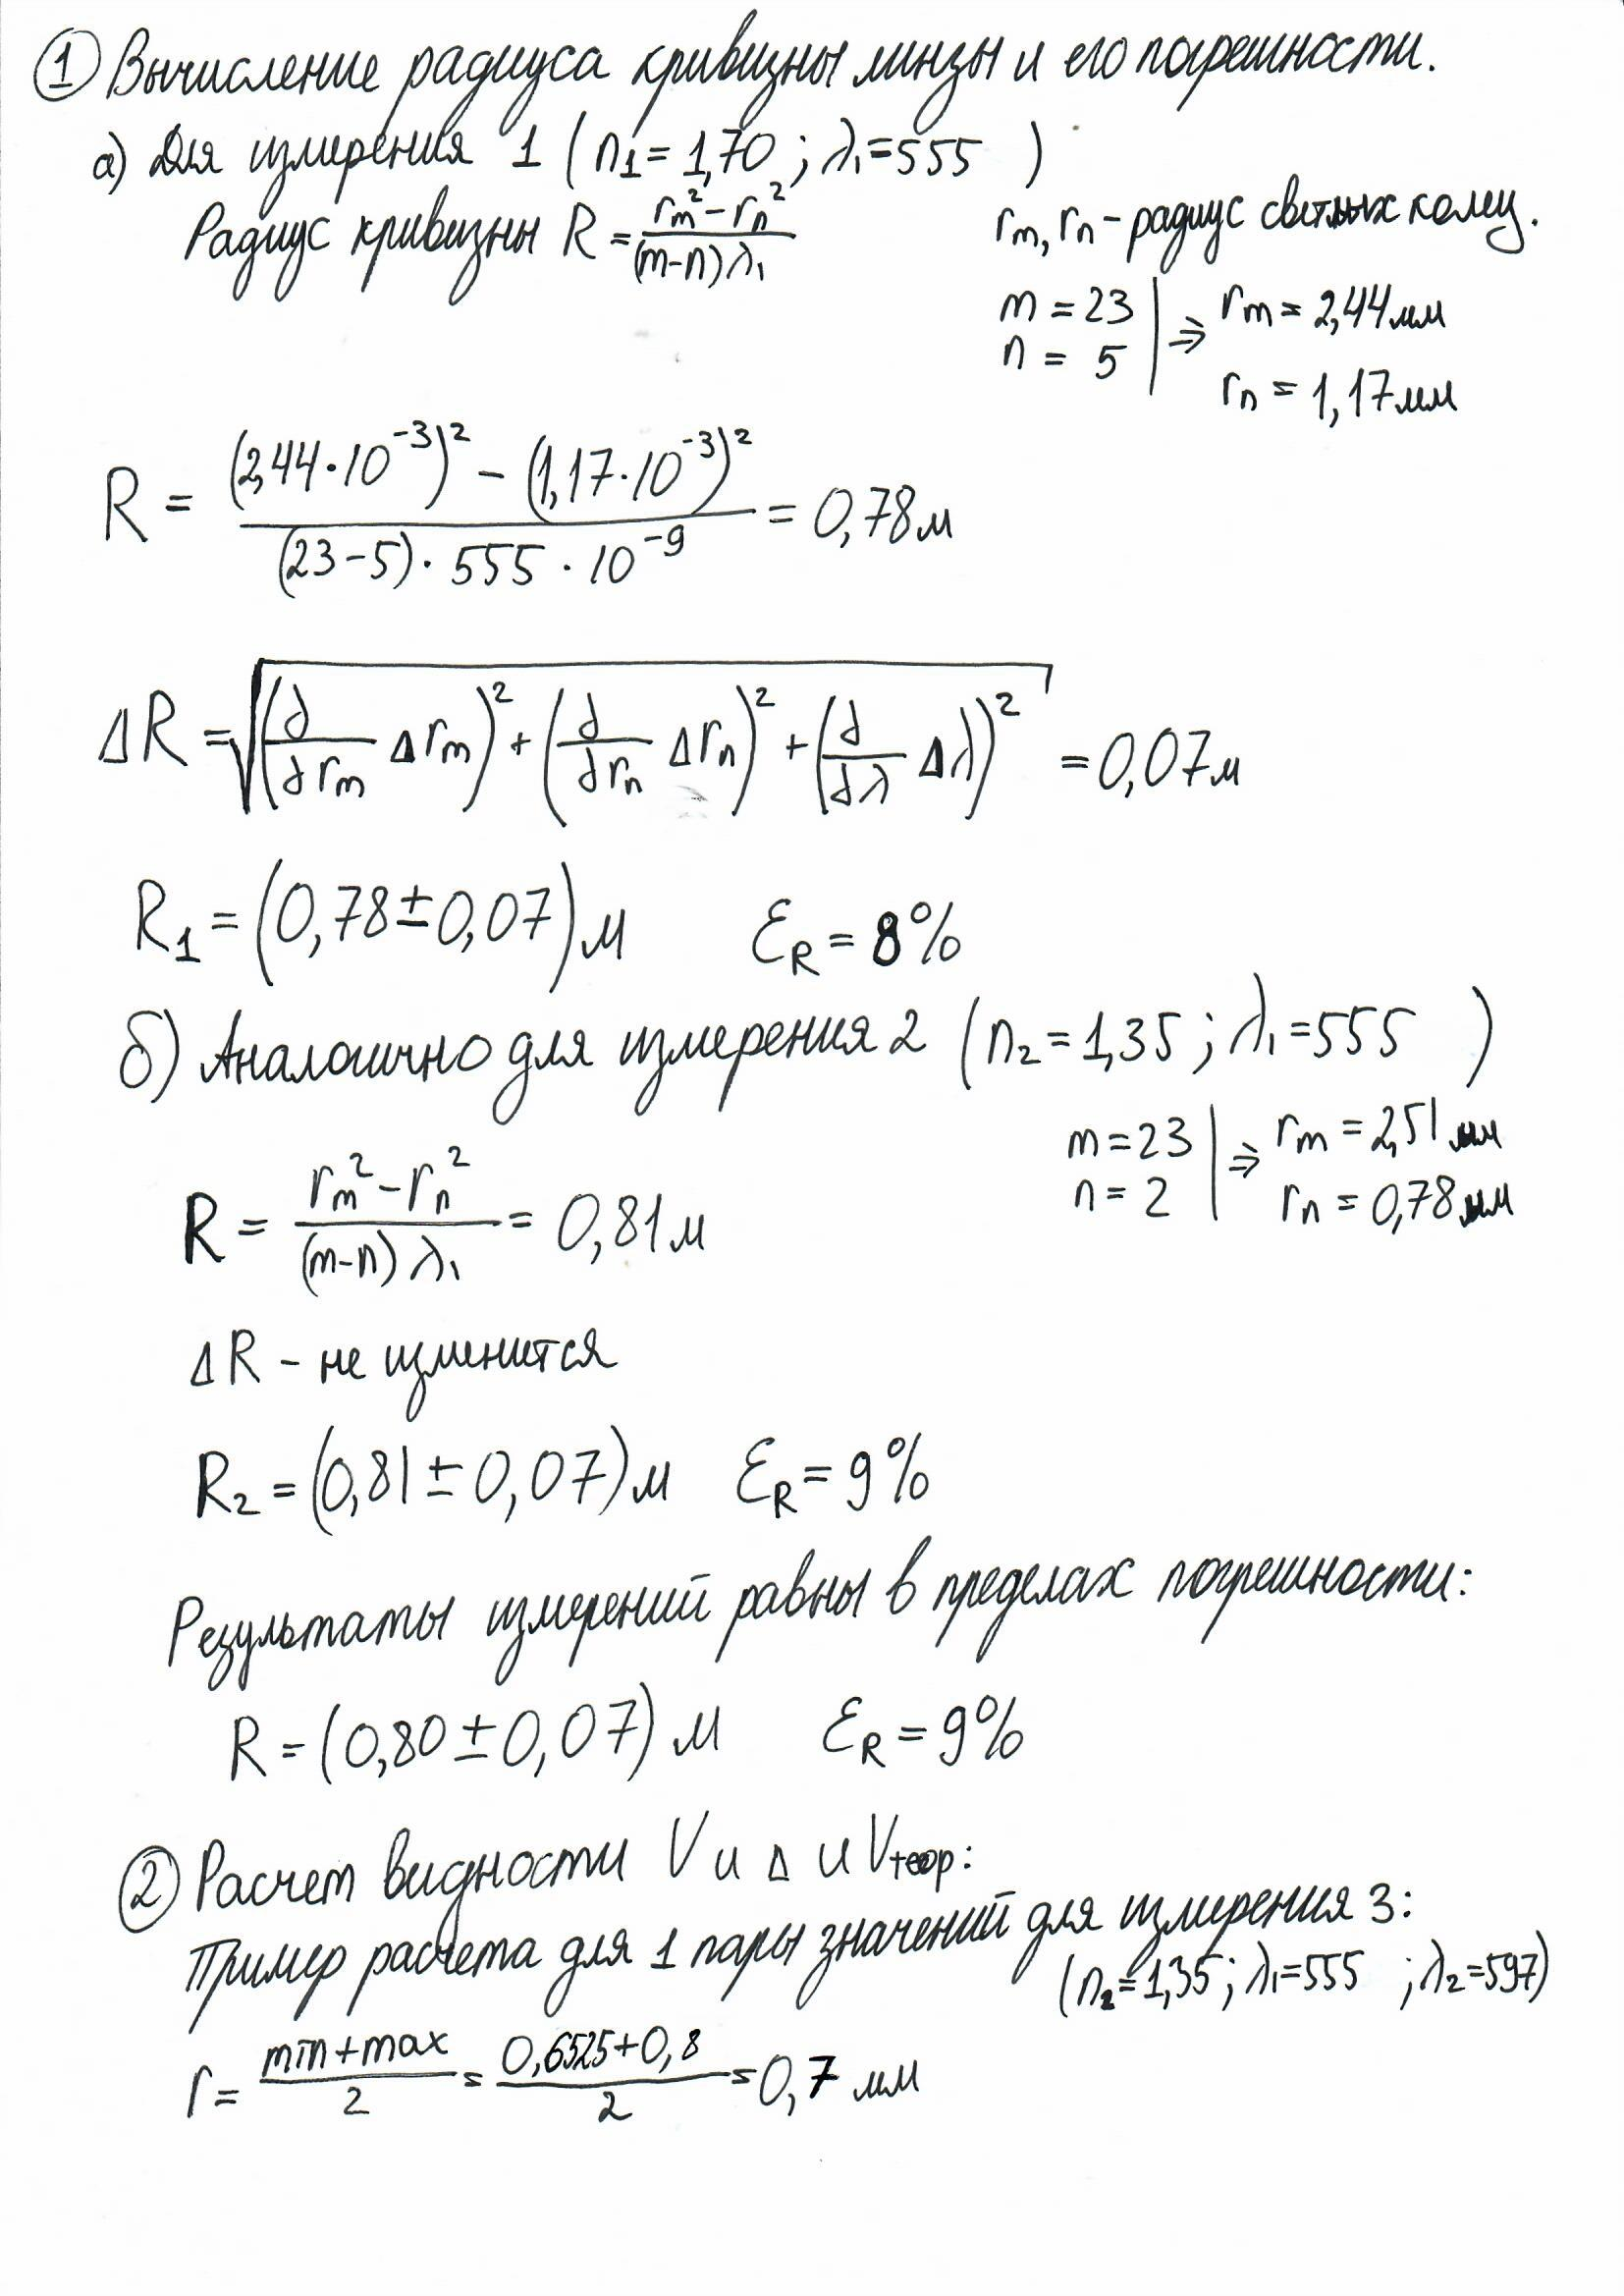 ① Вычисление радиуса кривизны линзы и его погрешности.
а) Для измерения 1 ( n₁ = 1,70 ; λ₁=555 )
Радиус кривизны R = (rₘ² − rₙ²)/((m−n) λ₁)
rₘ, rₙ – радиус светлых колец.
m = 23 | ⇒ rₘ = 2,44 мм
n = 5 | rₙ = 1,17 мм
R = ((2,44·10⁻³)² − (1,17·10⁻³)²)/((23−5)·555·10⁻⁹) = 0,78 м
ΔR = √((∂/∂rₘ Δrₘ)² + (∂/∂rₙ Δrₙ)² + (∂/∂λ Δλ)²) = 0,07 м
R₁ = (0,78 ± 0,07) м ε_R = 8%
б) Аналогично для измерения 2 (n₂ = 1,35 ; λ₁=555 )
m = 23 | ⇒ rₘ = 2,51 мм
n = 2 | rₙ = 0,78 мм
R = (rₘ² − rₙ²)/((m−n) λ₁) = 0,81 м
ΔR – не изменится
R₂ = (0,81 ± 0,07) м ε_R = 9%
Результаты измерений равны в пределах погрешности:
R = (0,80 ± 0,07) м ε_R = 9%
② Расчет видности V и Δ и Vтеор:
Пример расчета для 1 пары значений для измерения 3:
(n₂=1,35 ; λ₁=555 ; λ₂=597)
r = (min + max)/2 = (0,6525+0,8)/2 = 0,7 мм